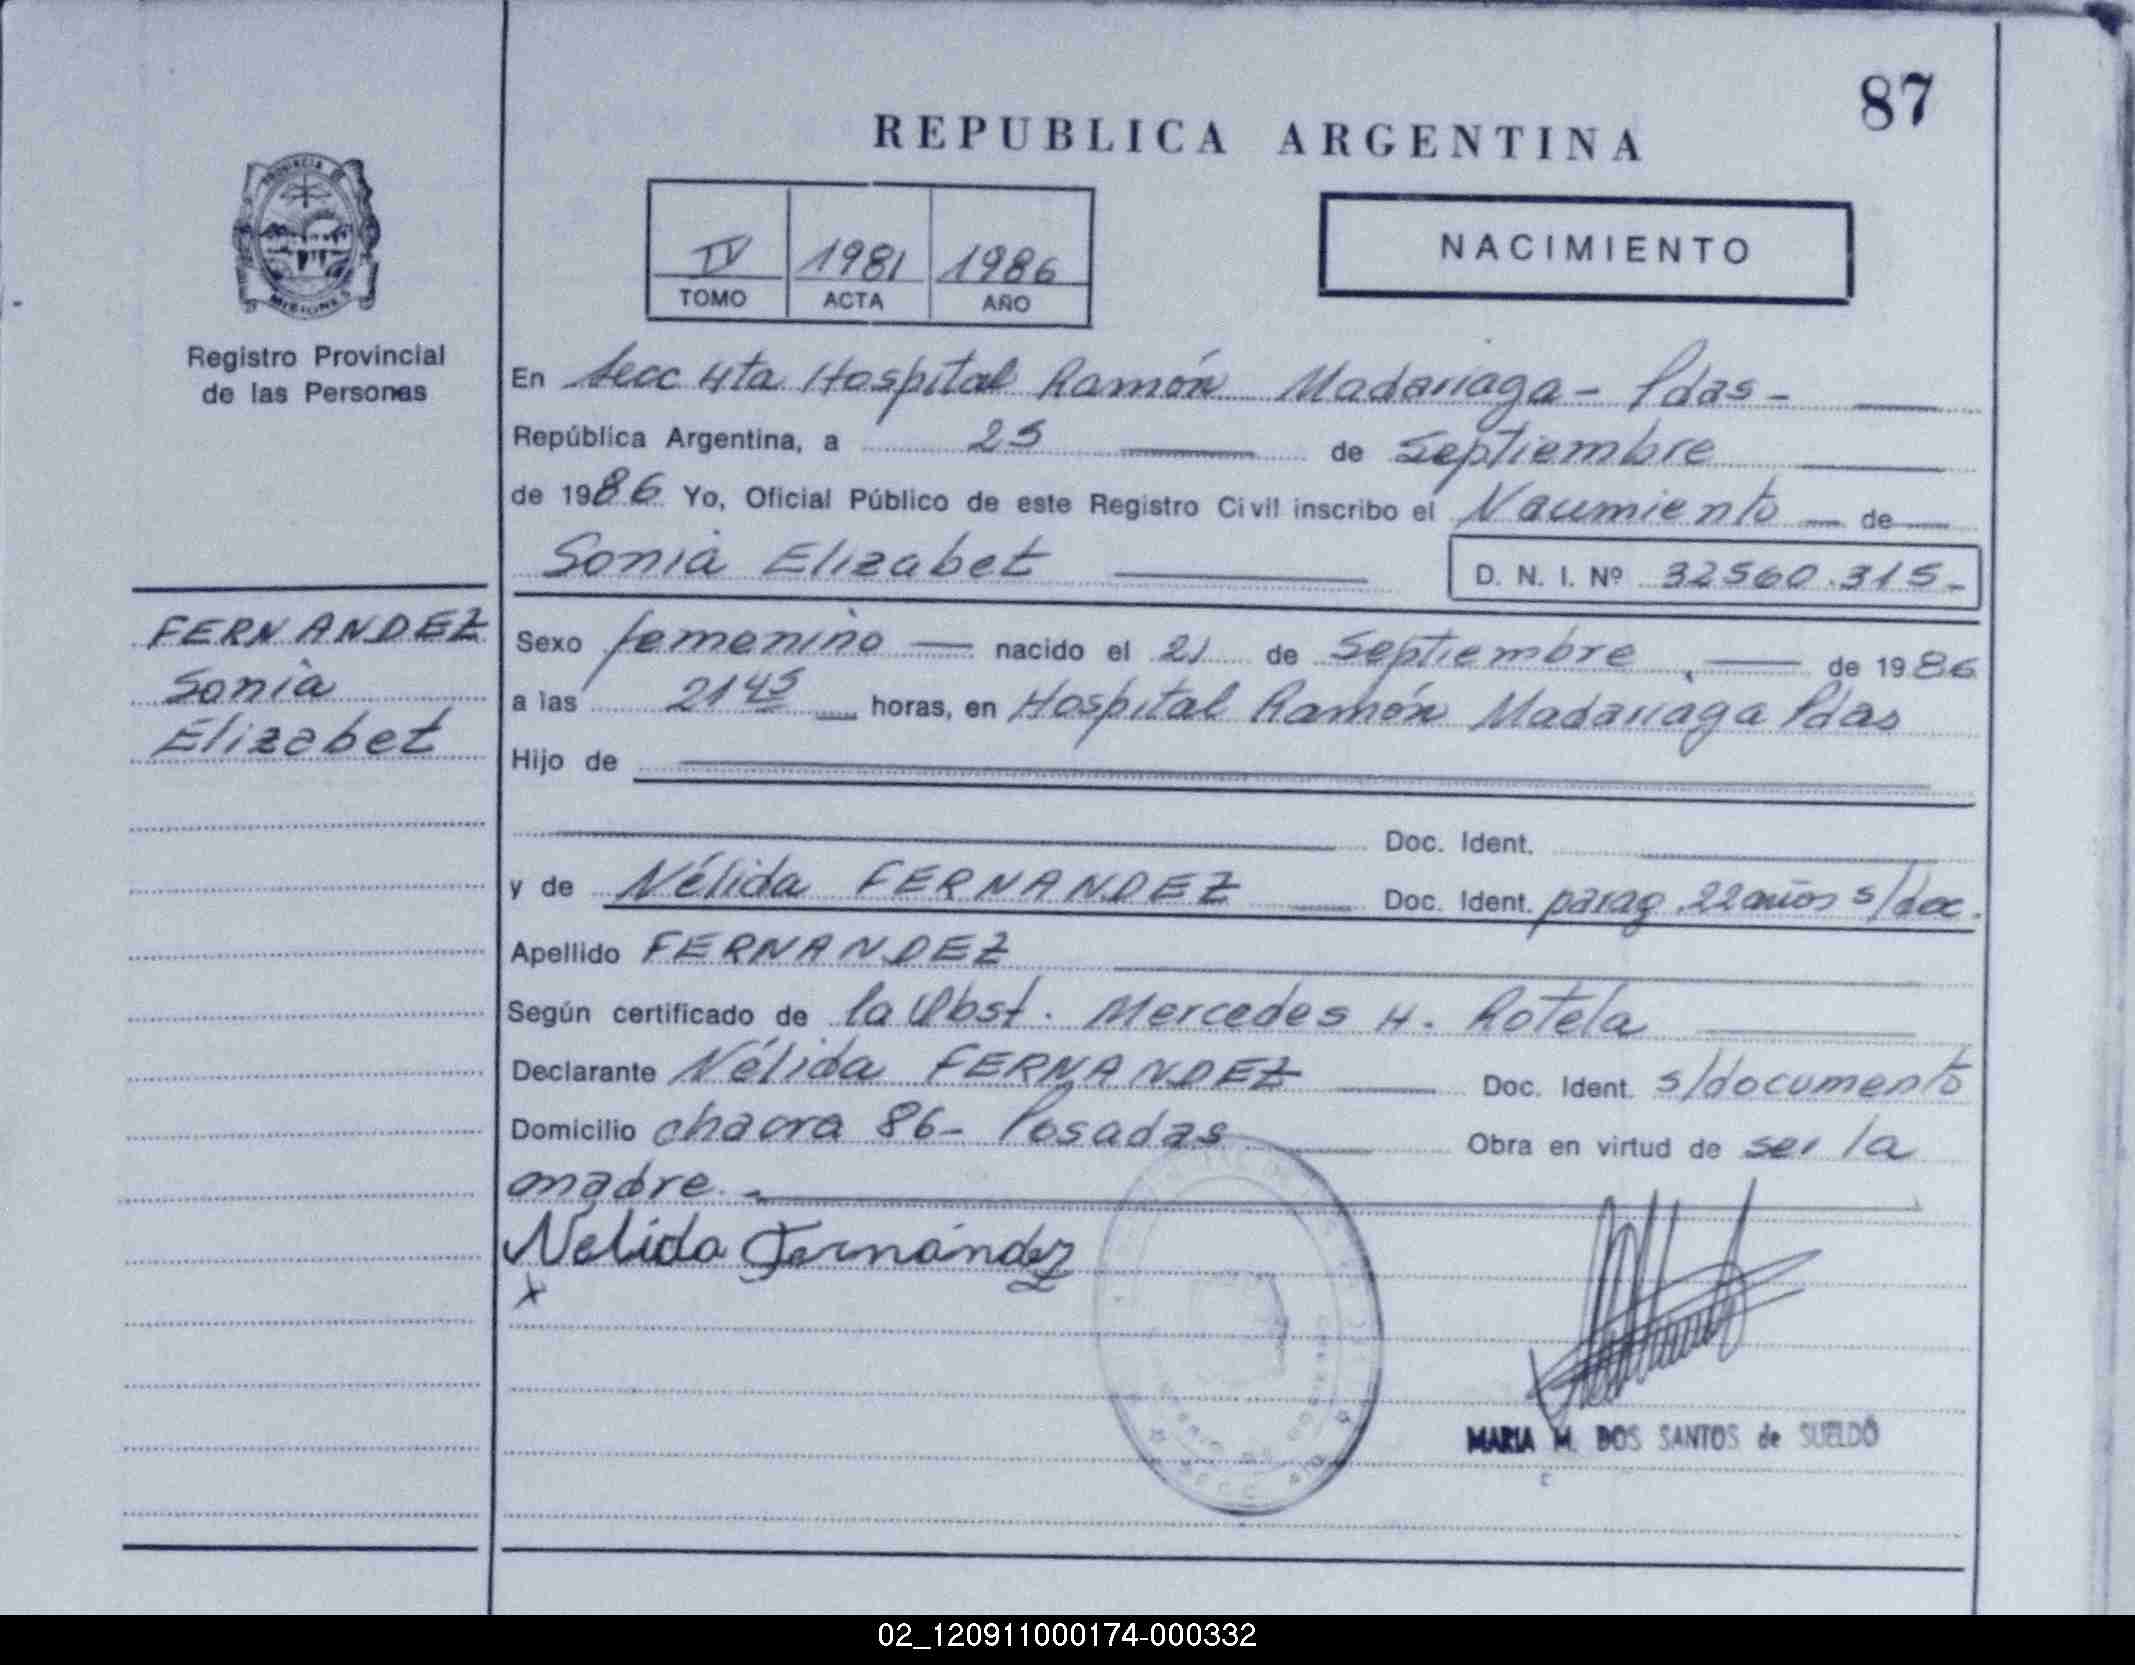 87
REPUBLICA ARGENTINA
PROVINCIA DE
MISIONES
Registro Provincial
de las Personas
IV 1981 1986
TOMO ACTA AÑO
NACIMIENTO
En Secc 4ta Hospital Ramón Madariaga - Pdas -
República Argentina, a 25 de Septiembre
de 1986 Yo, Oficial Público de este Registro Civil inscribo el Nacimiento de
Sonia Elizabet D. N. I. Nº 32560.315.-
FERNANDEZ
Sonia
Elizabet
Sexo femenino nacido el 21 de Septiembre de 1986
a las 21 45 horas, en Hospital Ramón Madariaga Pdas
Hijo de
Doc. Ident.
y de Nélida FERNANDEZ Doc. Ident. parag. 22 años s/doc.
Apellido FERNANDEZ
Según certificado de la Obst. Mercedes H. Rotela
Declarante Nélida FERNANDEZ Doc. Ident. s/documento
Domicilio chacra 86- Posadas Obra en virtud de ser la
madre.-
Nélida Fernández
x
MARIA M. DOS SANTOS de SUELDO
02_120911000174-000332